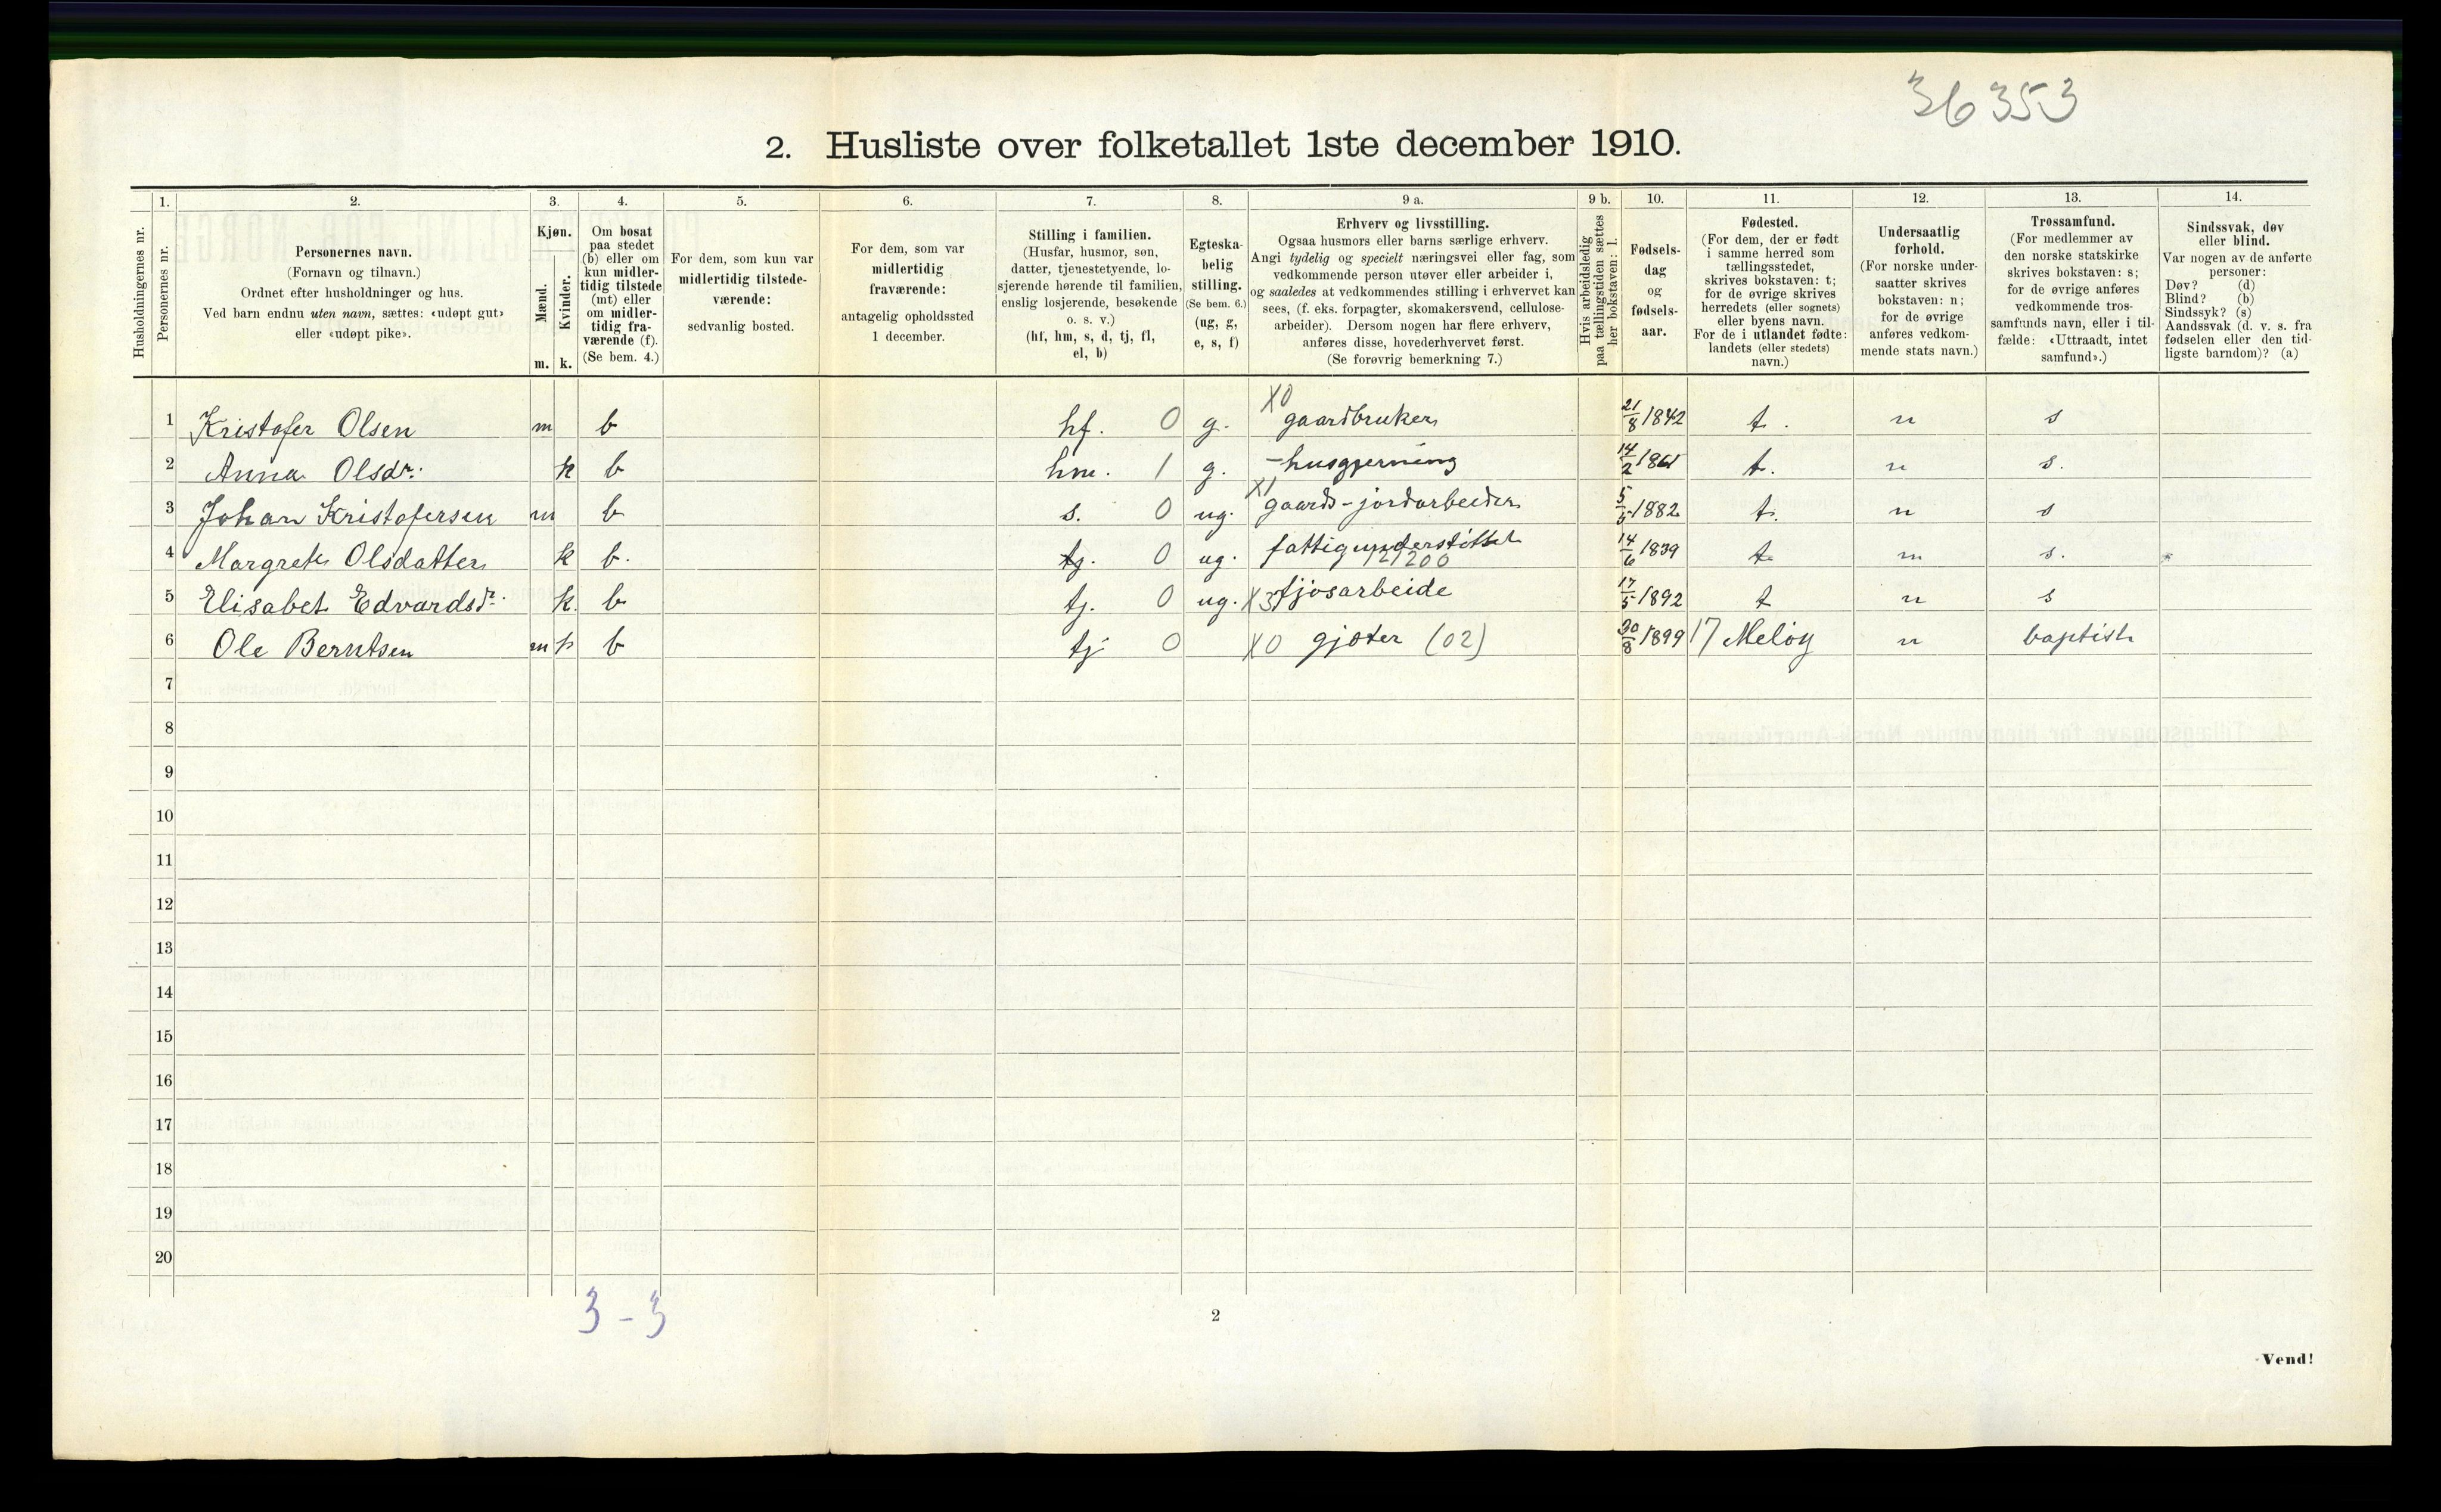 36353
2. Husliste over folketallet 1ste december 1910.
Husholdningernes nr.
1.
Personernes nr.
2.
Personernes navn.
(Fornavn og tilnavn.)
Ordnet efter husholdninger og hus.
Ved barn endnu uten navn, sættes: «udøpt gut»
eller «udøpt pike».
3.
Kjøn.
Mænd.
m.
Kvinder.
k.
4.
Om bosat
paa stedet
(b) eller om
kun midler-
tidig tilstede
(mt) eller
om midler-
tidig fra-
værende (f).
(Se bem. 4.)
5.
For dem, som kun var
midlertidig tilstede-
værende:
sedvanlig bosted.
6.
For dem, som var
midlertidig
fraværende:
antagelig opholdssted
1 december.
7.
Stilling i familien.
(Husfar, husmor, søn,
datter, tjenestetyende, lo-
sjerende hørende til familien,
enslig losjerende, besøkende
o. s. v.)
(hf, hm, s, d, tj, fl,
el, b)
8.
Egteska-
belig
stilling.
(Se bem. 6.)
(ug, g,
e, s, f)
9 a.
Erhverv og livsstilling.
Ogsaa husmors eller barns særlige erhverv.
Angi tydelig og specielt næringsvei eller fag, som
vedkommende person utøver eller arbeider i,
og saaledes at vedkommendes stilling i erhvervet kan
sees, (f. eks. forpagter, skomakersvend, cellulose-
arbeider). Dersom nogen har flere erhverv,
anføres disse, hovederhvervet først.
(Se forøvrig bemerkning 7.)
9 b.
Hvis arbeidsledig
paa tællingstiden sættes
her bokstaven: l.
10.
Fødsels-
dag
og
fødsels-
aar.
11.
Fødested.
(For dem, der er født
i samme herred som
tællingsstedet,
skrives bokstaven: t;
for de øvrige skrives
herredets (eller sognets)
eller byens navn.
For de i utlandet fødte:
landets (eller stedets)
navn.)
12.
Undersaatlig
forhold.
(For norske under-
saatter skrives
bokstaven: n;
for de øvrige
anføres vedkom-
mende stats navn.)
13.
Trossamfund.
(For medlemmer av
den norske statskirke
skrives bokstaven: s;
for de øvrige anføres
vedkommende tros-
samfunds navn, eller i til-
fælde: «Uttraadt, intet
samfund».)
14.
Sindssvak, døv
eller blind.
Var nogen av de anførte
personer:
Døv? (d)
Blind? (b)
Sindssyk? (s)
Aandssvak (d. v. s. fra
fødselen eller den tid-
ligste barndom)? (a)
1 Kristofer Olsen m b hf. 0 g. X0 gaardbruker 21/8 1842 t. n s
2 Anna Olsdr. k b hm. 1 g. - husgjerning 14/2 1861 t. n s.
3 Johan Kristofersen m b s. 0 ug. X1 gaards-jordarbeider 5/5 1882 t. n s
4 Margrete Olsdatter k b. tj. 0 ug. fattigunderstöttet 121200 14/6 1839 t n s.
5 Elisabet Edvardsdr. k. b tj. 0 ug. X3 fjøsarbeide 17/5 1892 t n s
6 Ole Berntsen m k b tj 0 X0 gjæter (02) 30/8 1899 17 Meløy n baptist
7
8
9
10
11
12
13
14
15
16
17
18
19
20
3 - 3
2
Vend!